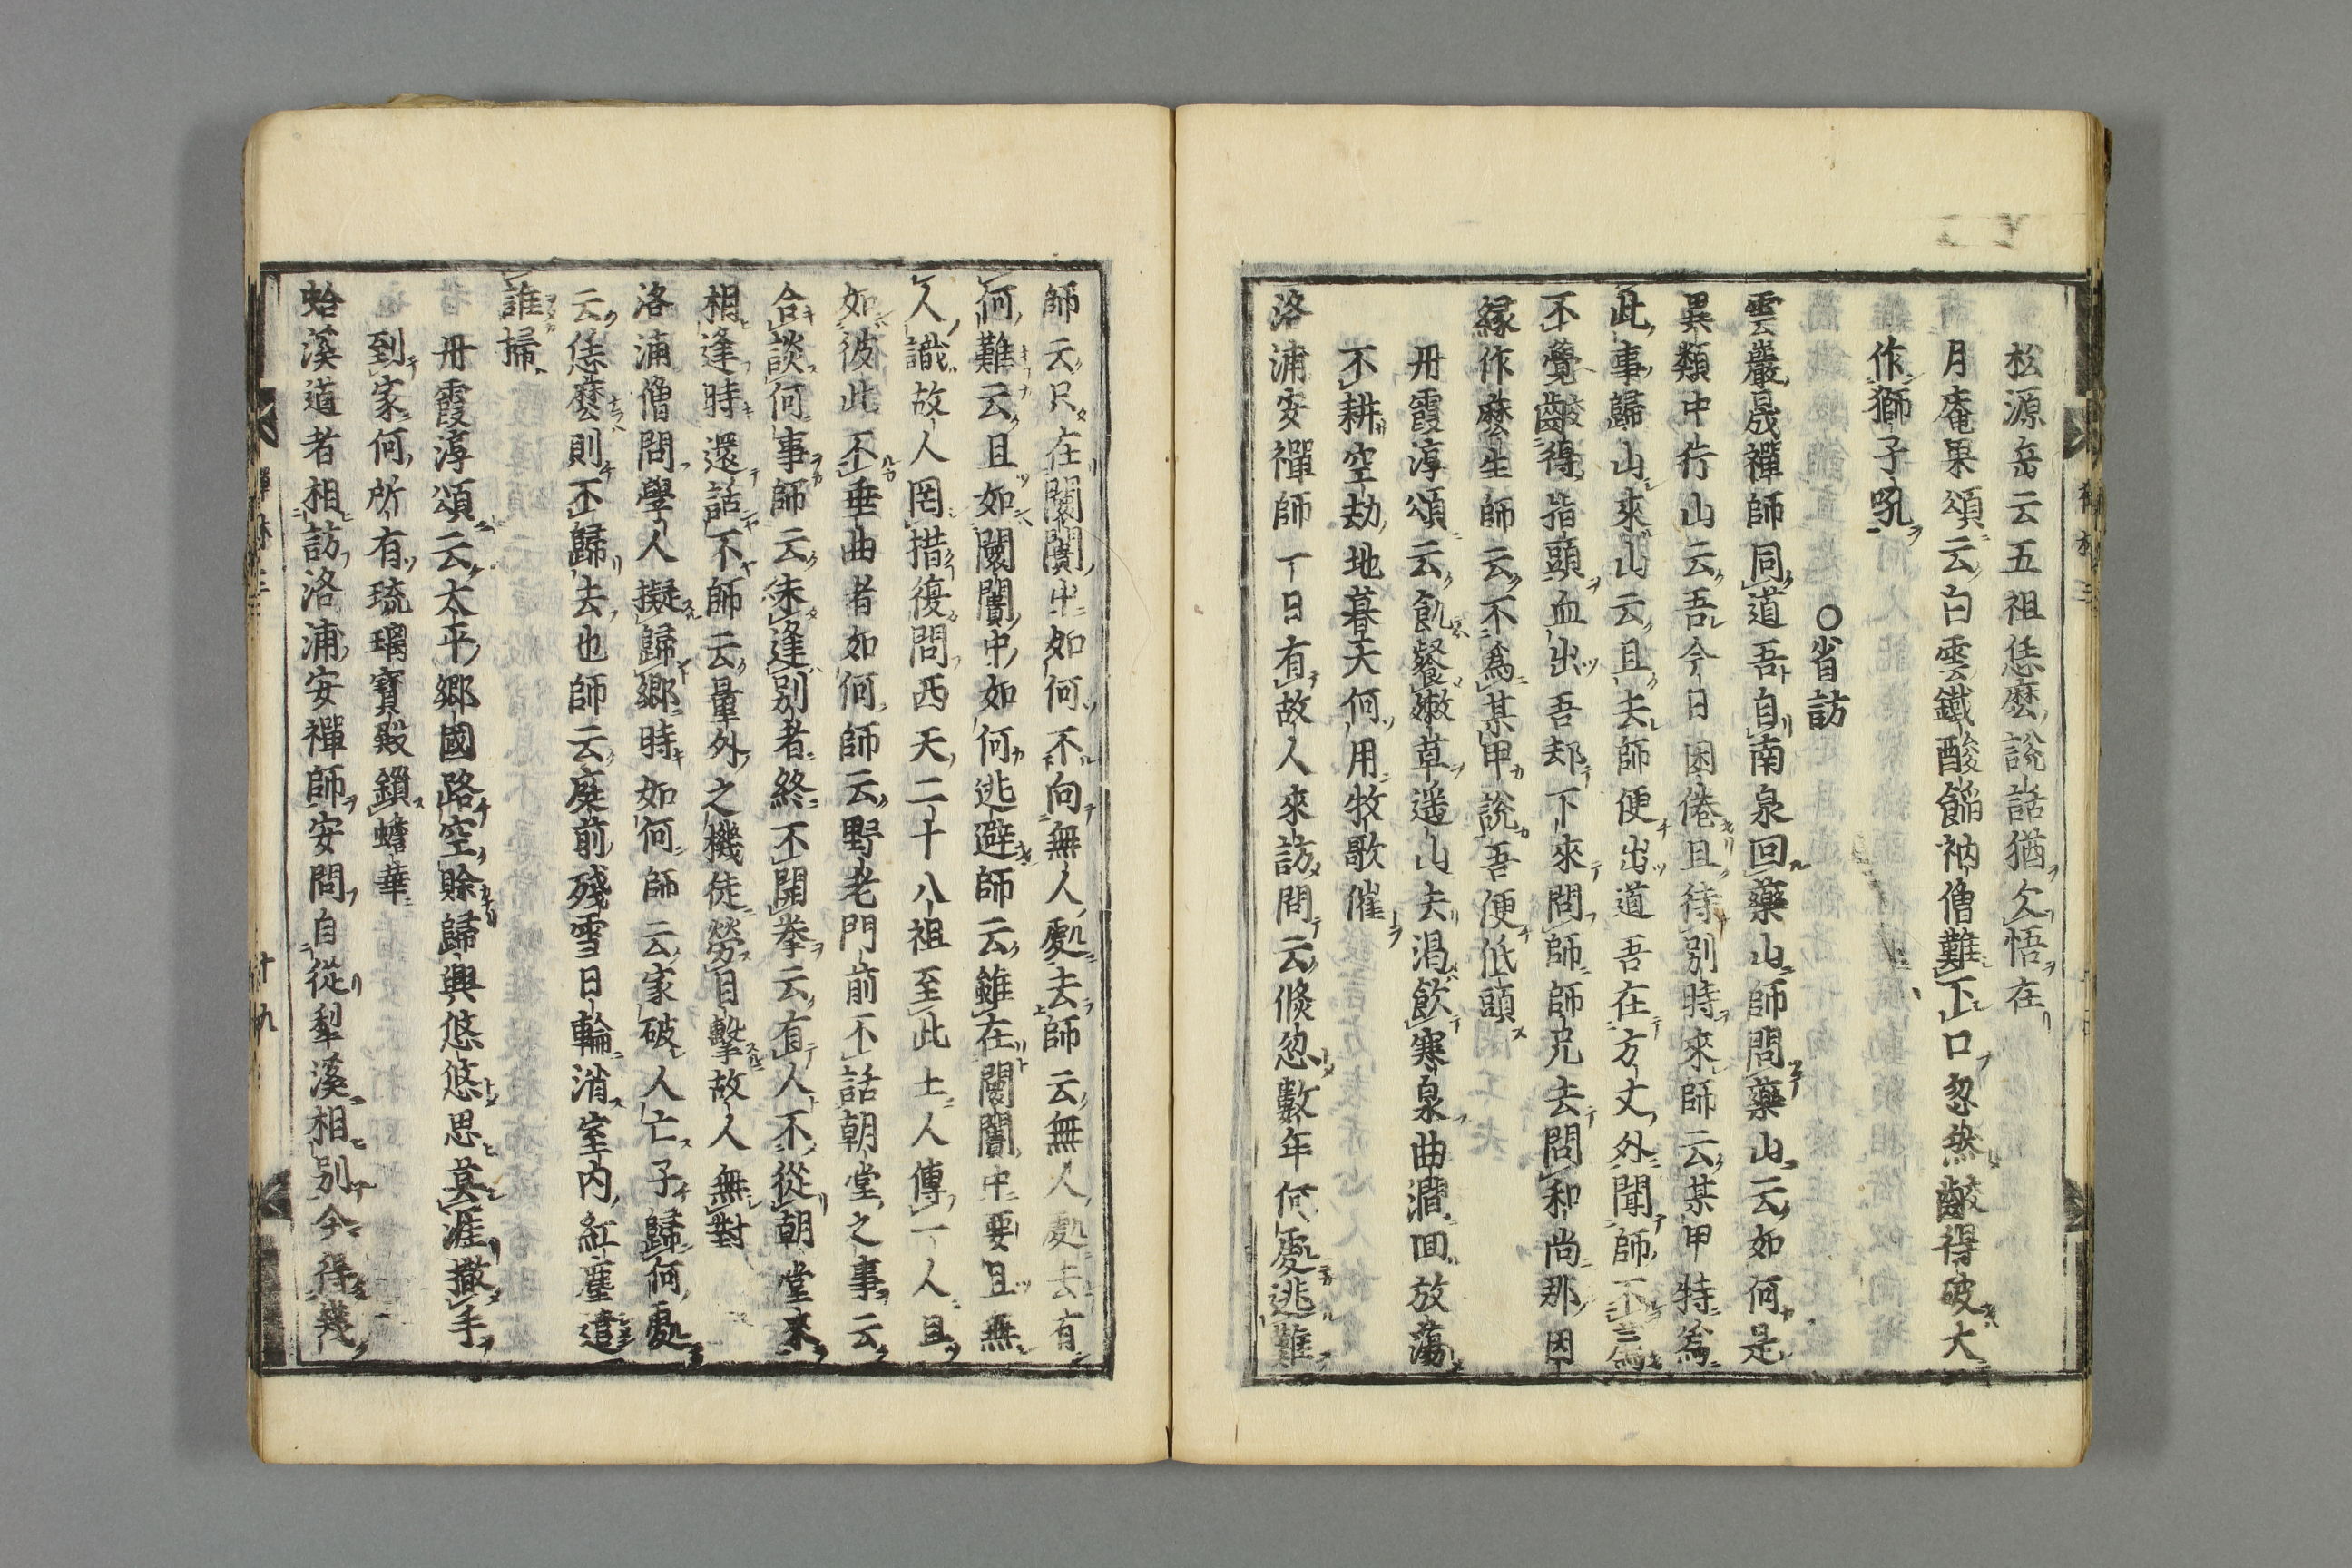 松源岳云五祖恁麽説話猶欠悟在
月庵果頌云白雲鐵酸餡衲僧難下口忽然齩得破大
作獅子吼
○省訪
雲巖晟禪師同道吾自南泉回藥山師問藥山云如何是
異類中行山云吾今日困倦且待別時來師云某甲特爲
此事歸山來山云且去師便出道吾在方丈外聞師不薦
不覺齩得指頭血出吾却下來問師師兄去問和尚那因
縁作麽生師云不爲某甲説吾便低頭
丹霞淳頌云飢餐嫩草遥山去渇飲寒泉曲澗回放蕩
不耕空劫地暮天何用牧歌催
洛浦安禪師一日有故人來訪問云倏忽數年何處逃難
師云只在闤闠中如何不向無人處去師云無人處去有
何難云且如闤闠中如何逃避師云雖在闤闠中要且無
人識故人罔措復問西天二十八祖至此土人傳一人且
如彼此不垂曲者如何師云野老門前不話朝堂之事云
合談何事師云未逢別者終不開拳云有人不從朝堂來
相逢時還話不師云量外之機徒勞目擊故人無對
洛浦僧問學人擬歸郷時如何師云家破人亡子歸何處
云恁麽則不歸去也師云庭前殘雪日輪消室内紅塵遣
誰掃
丹霞淳頌云太平郷國路空賖歸興悠悠思莫涯撒手
到家何所有琉璃寶殿鎖蟾華
蛤溪道者相訪洛浦安禪師安問自從犁溪相別今得幾
禪林三
十九